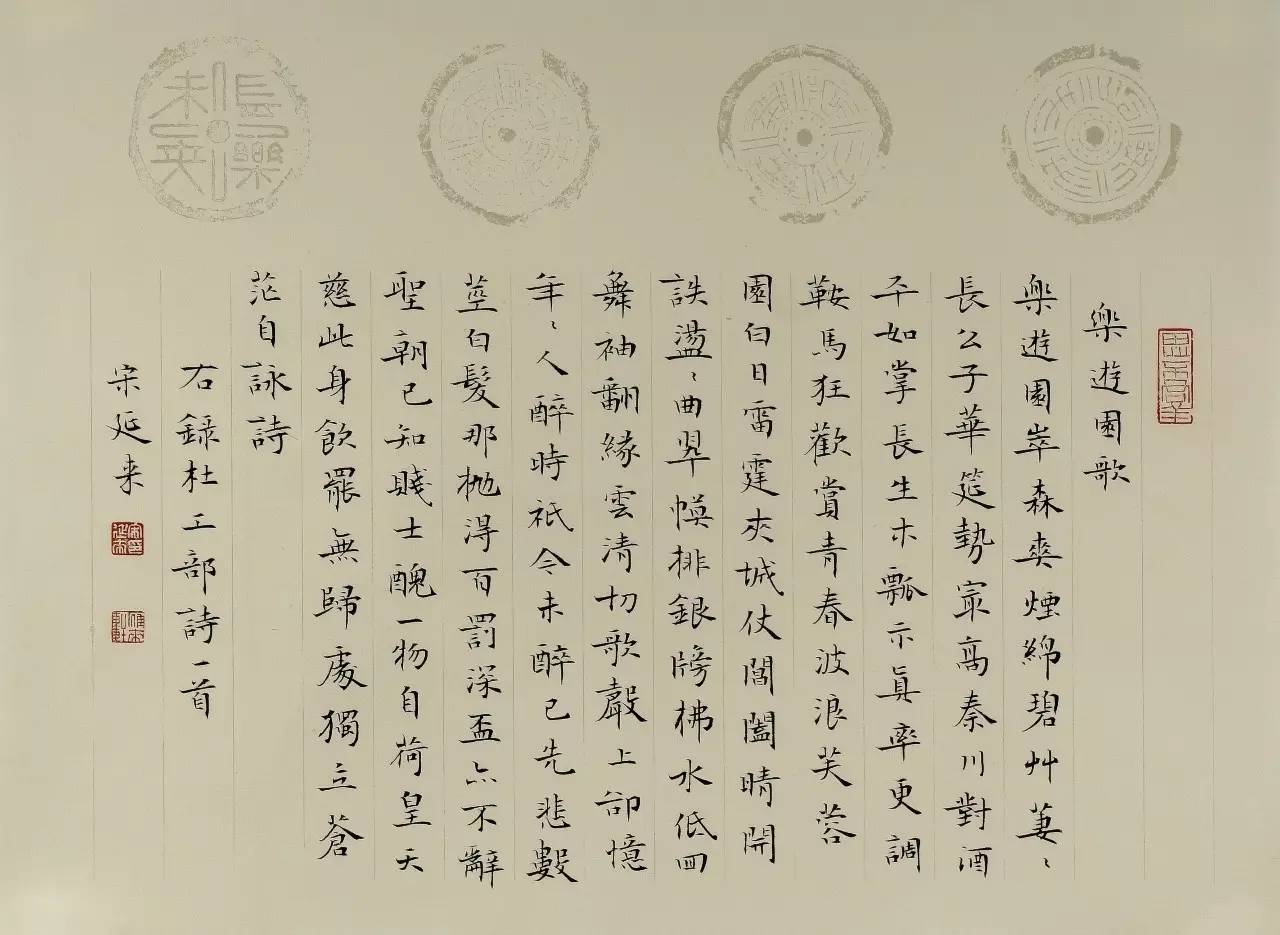 樂遊園歌
樂遊園崒森爽煙綿碧艸萋〻
長公子華筵勢冣高秦川對酒
平如掌長生木瓢示眞率更調
鞍馬狂歡賞青春波浪芙蓉
園白日雷霆夾城仗閶闔晴開
詄盪〻曲翠幙排銀牓拂水低回
舞袖翻緣雲清切歌聲上卻憶
年〻人醉時祇今未醉已先悲數
莖白髮那抛得百罰深盃亦不辭
聖朝已知賤士醜一物自荷皇天
慈此身飲罷無歸處獨立蒼
茫自詠詩
右錄杜工部詩一首
宋延来
長樂未央